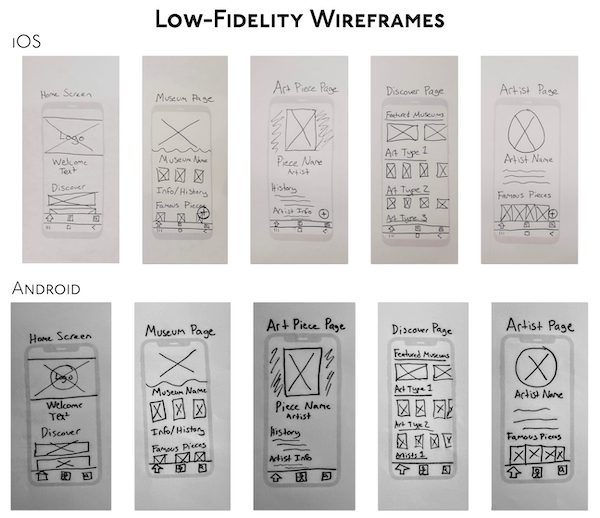 LOW-FIDELITY WIREFRAMES
iOS
Home Screen
Logo
Welcome
Text
Discover
Museum Page
Museum Name
Info/History
Famous Pieces
Art Piece Page
Piece Name
Artist
History
Artist Info
Discover Page
Featured Museums
Art Type 1
Art Type 2
Art Type 3
Artist Page
Artist Name
Famous Pieces
ANDROID
Home Screen
Logo
Welcome
Text
Discover
Museum Page
Museum Name
Info/History
Famous Pieces
Art Piece Page
Piece Name
Artist
History
Artist Info
Discover Page
Featured Museums
Art Type 1
Art Type 2
Artists 1
Artist Page
Artist Name
Famous Pieces